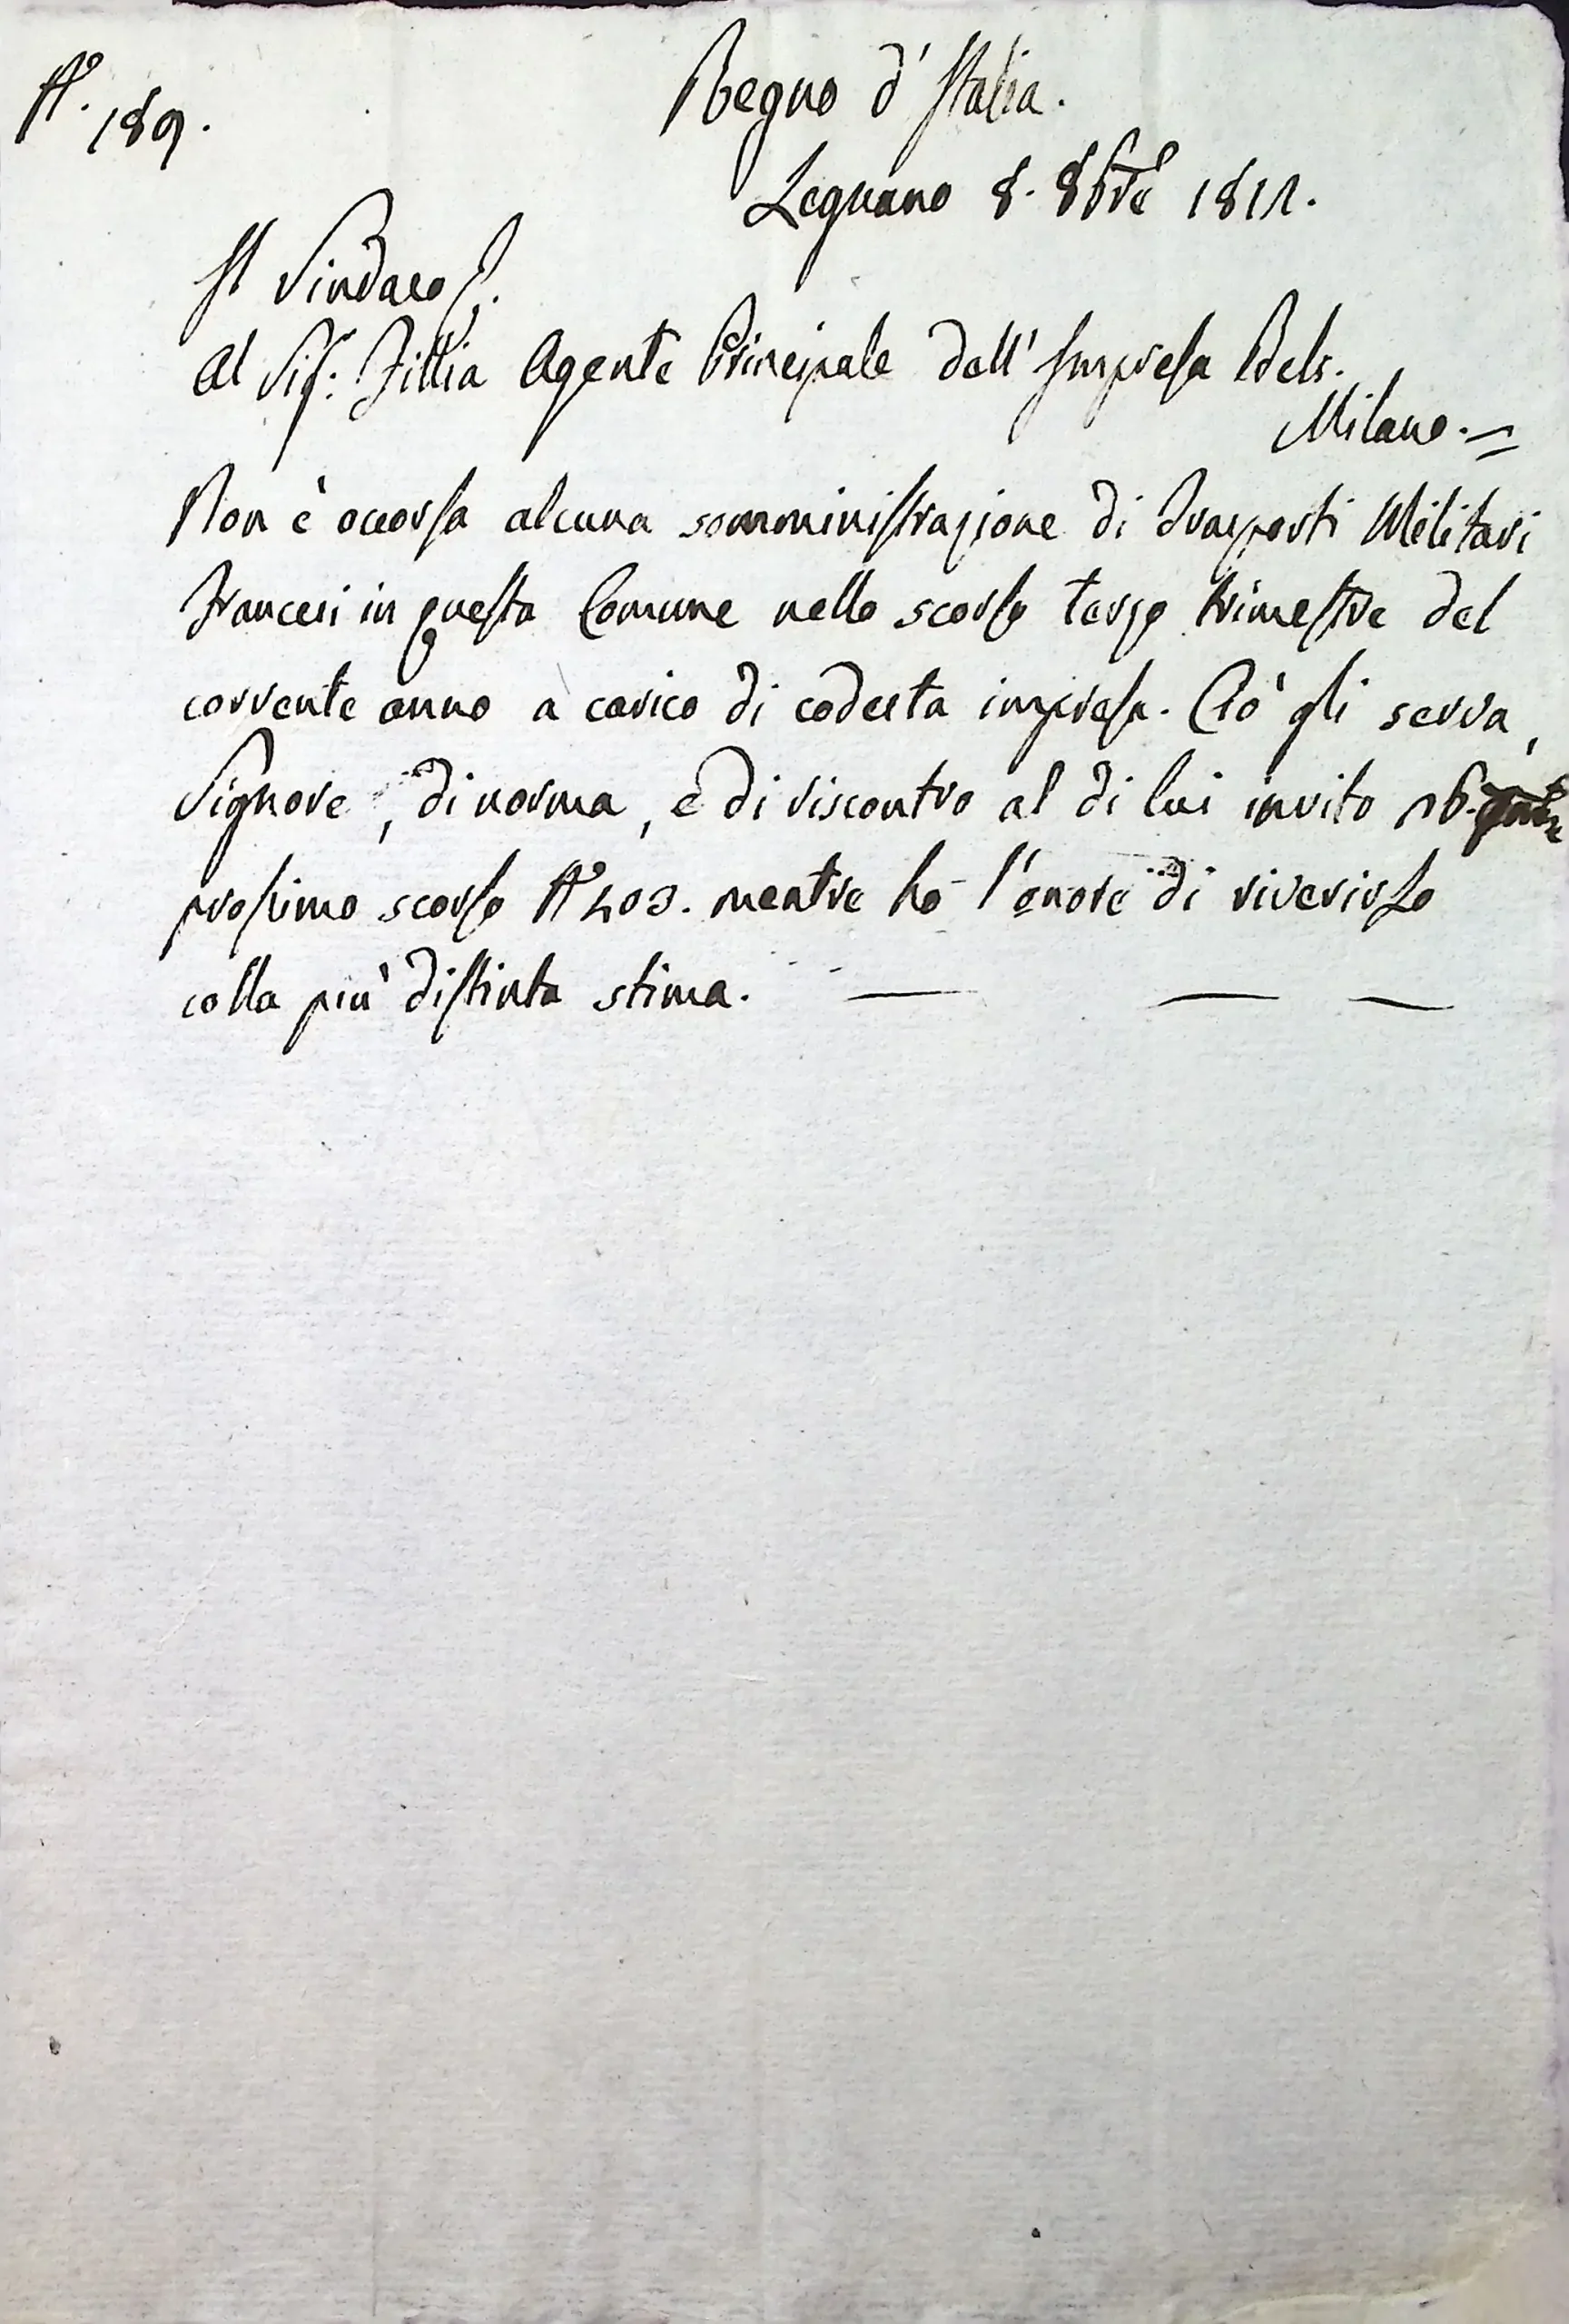 N.° 189.
Regno d'Italia.
Legnano 8. 8bre 1811.
Il Sindaco
Al Sig.r Fillia Agente Principale dell'Impresa Bels.
Milano. =
Non è occorsa alcuna somministrazione di Trasporti Militari
Francesi in questa Comune nello scorso terzo trimestre del
corrente anno a carico di codesta impresa. Ciò gli serva,
Signore, di norma, e di riscontro al di lui invito 26.
prossimo scorso N.° 203. mentre ho l'onore di riverirlo
colla più distinta stima.